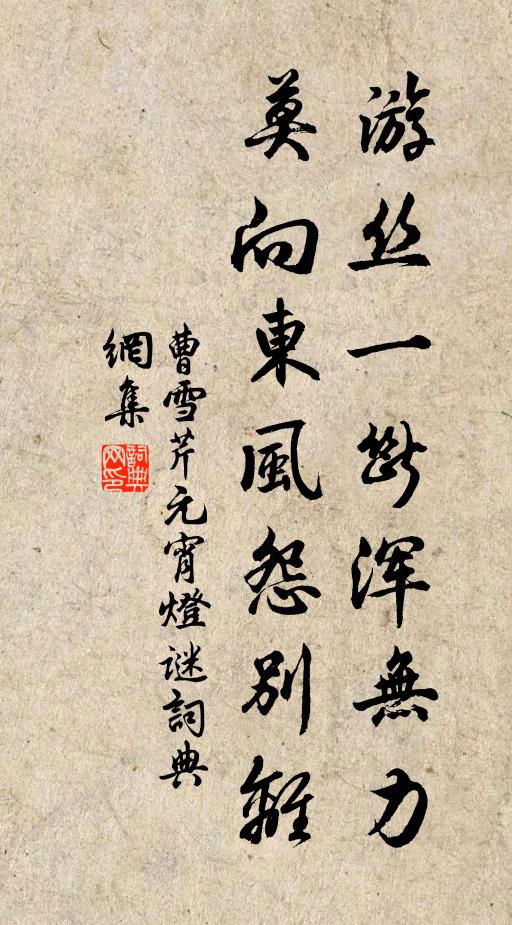 游丝一断浑無力
莫向東風怨别離
曹雪芹元宵燈谜詞典
網集
詞典网印